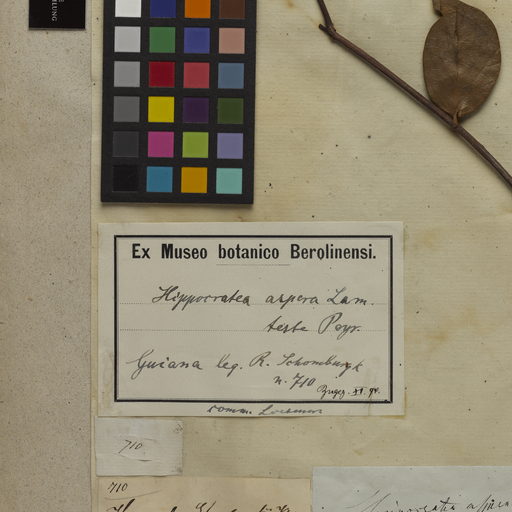 LUNG
Ex Museo botanico Berolinensi.
Hippocratea aspera Lam.
teste Peyr.
Guiana leg. R. Schomburgk
n. 710
XI. 94.
comm. Loesener
710
710
Hippocratea aspera